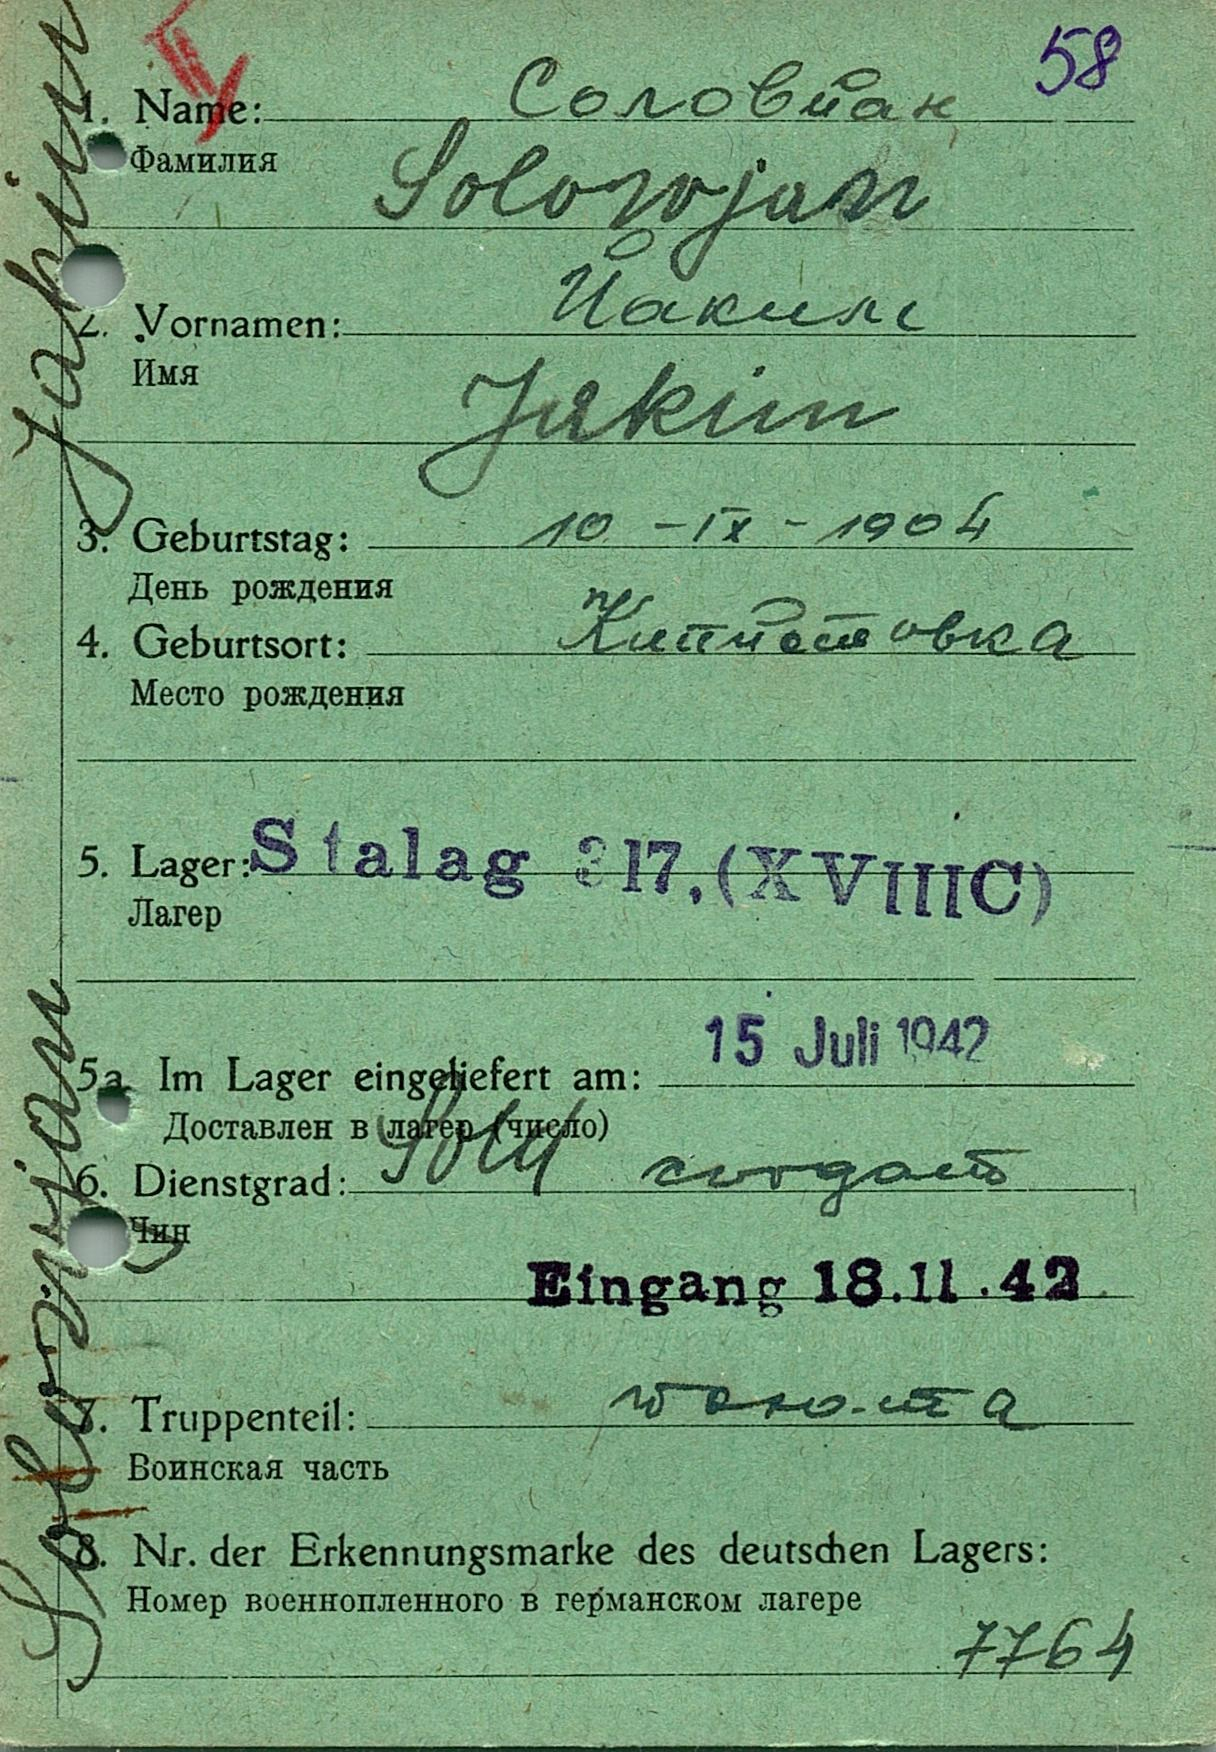 58
1. Name: Соловйан
Фамилия
Solowjan
2. Vornamen: Йаким
Имя
Jakim
3. Geburtstag: 10 - IX - 1904
День рождения
4. Geburtsort:
Место рождения
5. Lager: Stalag 317, (XVIIIC)
Лагер
15 Juli 1942
5a. Im Lager eingeliefert am:
Доставлен в лагер (число)
6. Dienstgrad: Sold солдат
Чин
Eingang 18.11.42
7. Truppenteil:
Воинская часть
8. Nr. der Erkennungsmarke des deutschen Lagers:
Номер военнопленного в германском лагере
7764
Solowjan Jakim